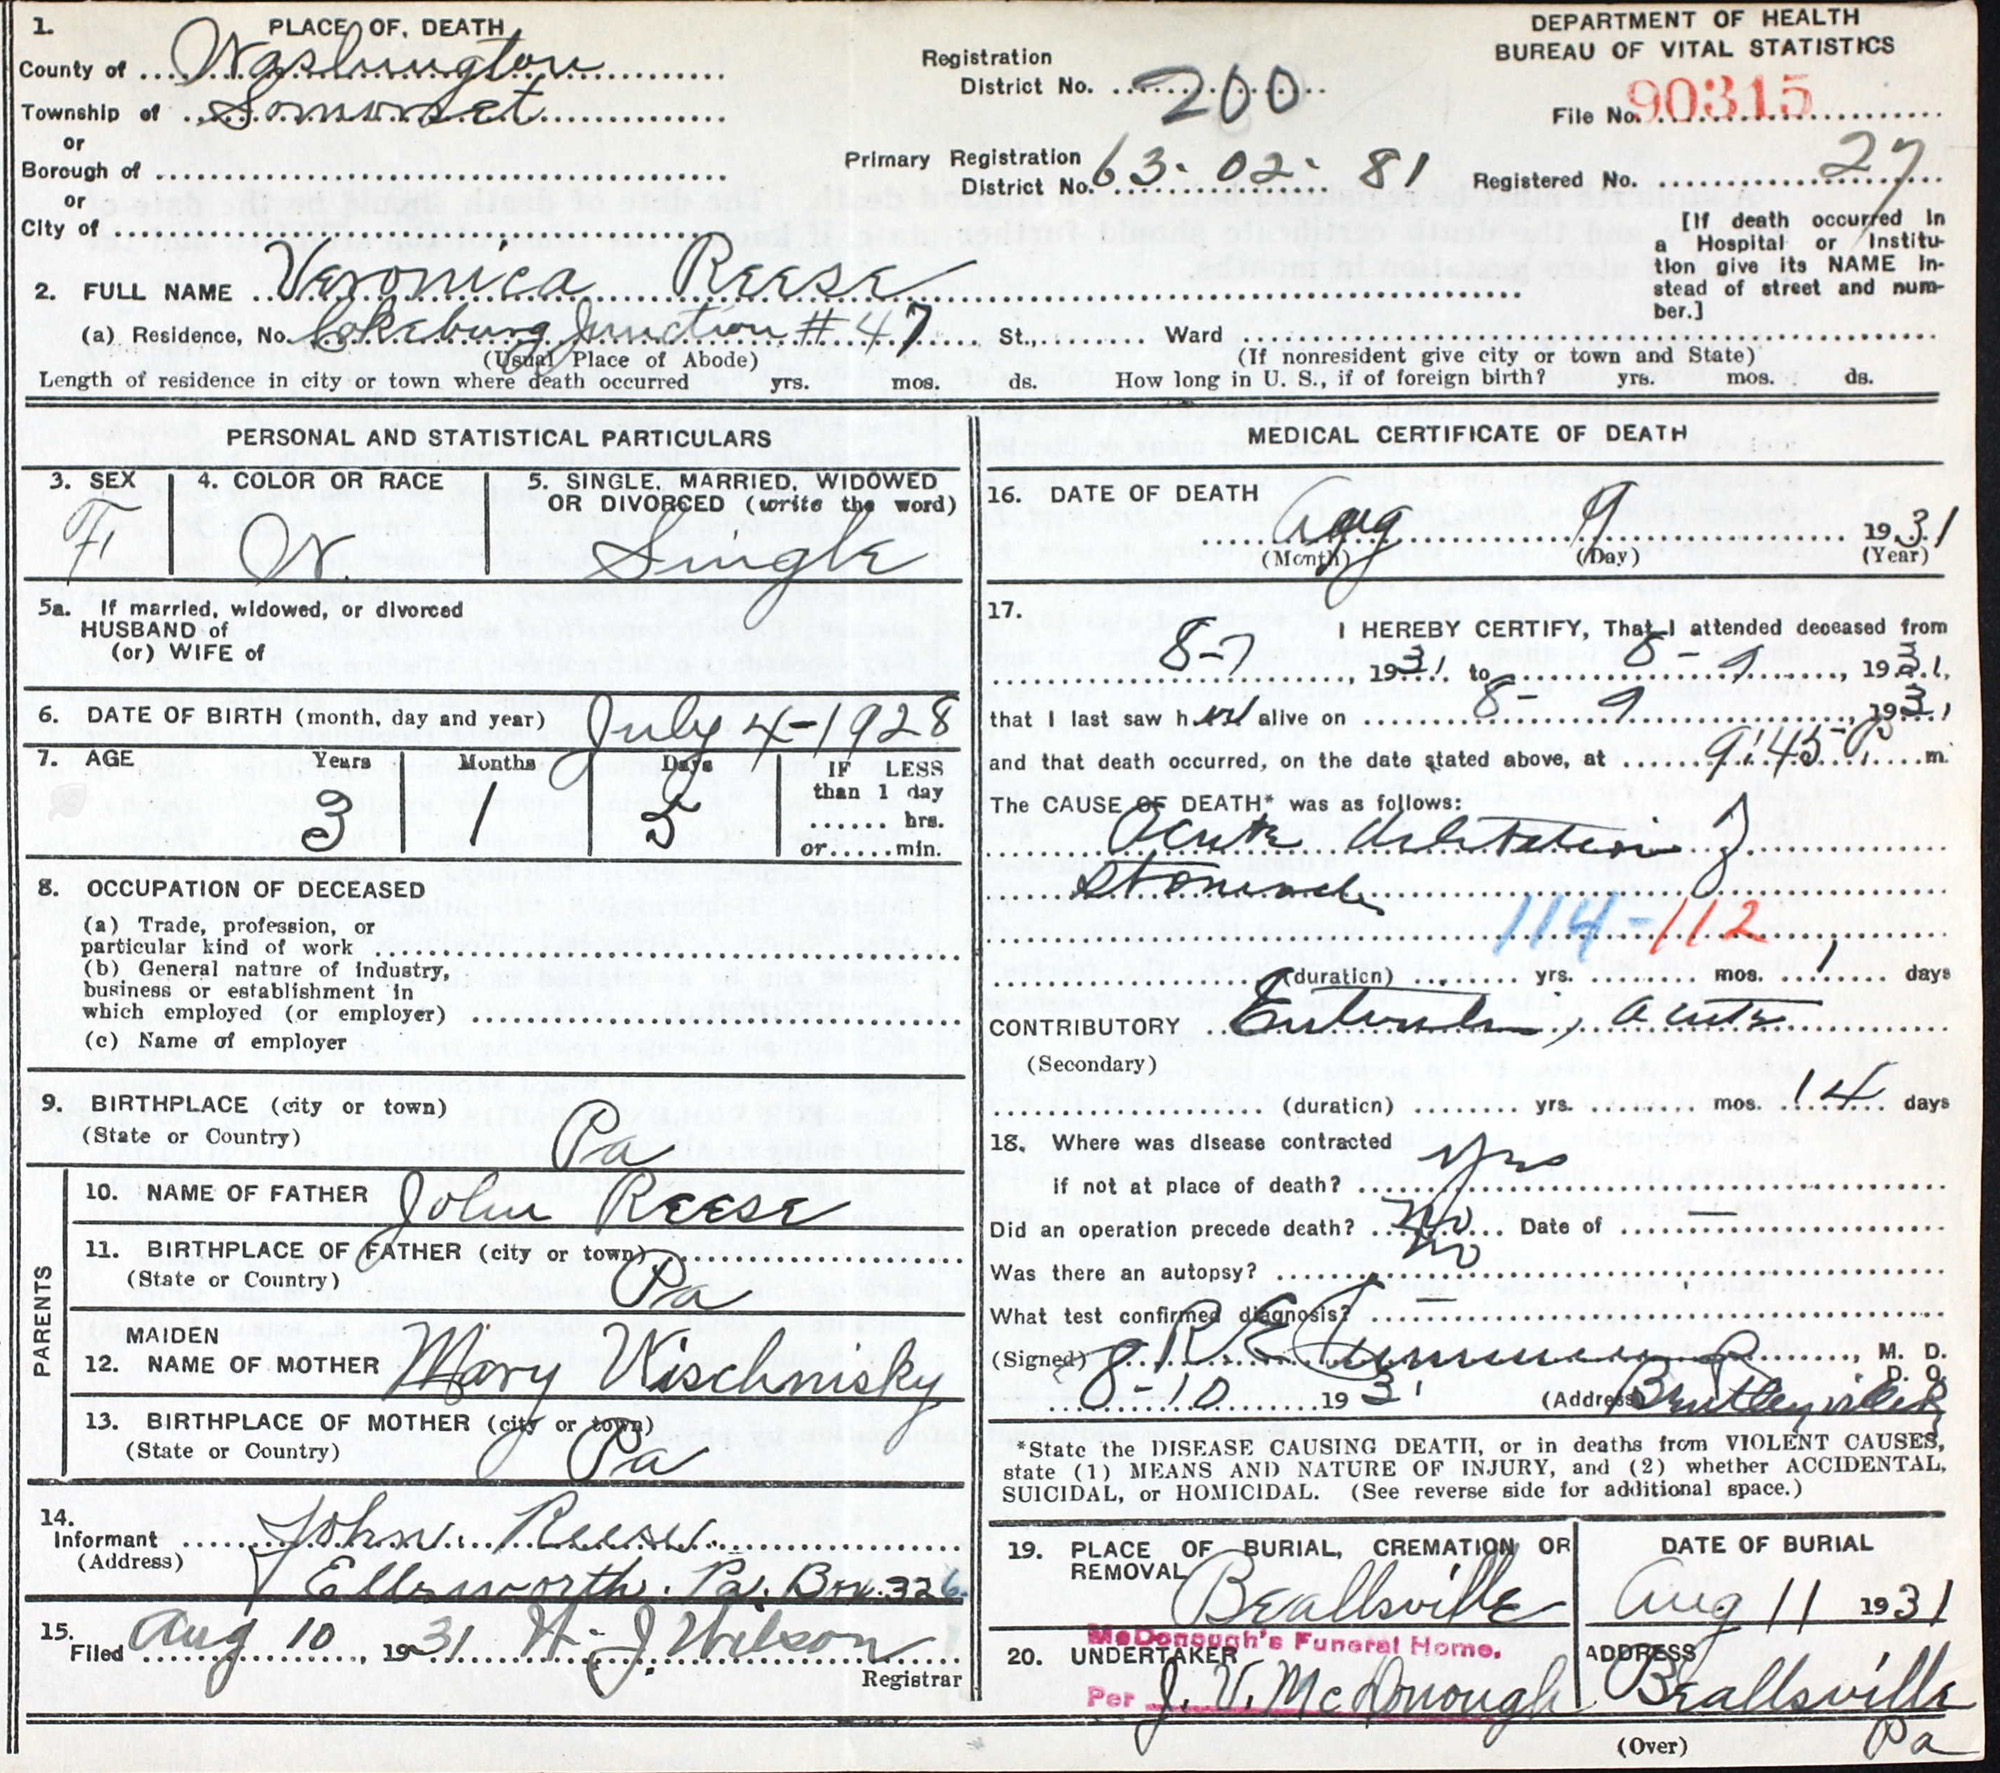 1. PLACE OF DEATH
County of Washington
Township of Somerset
or
Borough of
or
City of
Registration
District No. 200
Primary Registration
District No. 63-02-81
DEPARTMENT OF HEALTH
BUREAU OF VITAL STATISTICS
File No. 90315
Registered No. 27
[If death occurred in
a Hospital or Institu-
tion give its NAME in-
stead of street and num-
ber.]
2. FULL NAME Veronica Reese
(a) Residence, No. Cokeburg Junction #47 St., Ward
(Usual Place of Abode) (If nonresident give city or town and State)
Length of residence in city or town where death occurred yrs. mos. ds. How long in U. S., if of foreign birth? yrs. mos. ds.
PERSONAL AND STATISTICAL PARTICULARS
3. SEX 4. COLOR OR RACE 5. SINGLE, MARRIED, WIDOWED
OR DIVORCED (write the word)
F W. Single
5a. If married, widowed, or divorced
HUSBAND of
(or) WIFE of
6. DATE OF BIRTH (month, day and year) July 4-1928
7. AGE Years Months Days IF LESS
than 1 day
3 1 5 hrs.
or min.
8. OCCUPATION OF DECEASED
(a) Trade, profession, or
particular kind of work
(b) General nature of industry,
business or establishment in
which employed (or employer)
(c) Name of employer
9. BIRTHPLACE (city or town)
(State or Country) Pa
PARENTS
10. NAME OF FATHER John Reese
11. BIRTHPLACE OF FATHER (city or town)
(State or Country) Pa
MAIDEN
12. NAME OF MOTHER Mary Wischnisky
13. BIRTHPLACE OF MOTHER (city or town)
(State or Country) Pa
14.
Informant John Reese
(Address) Ellsworth. Pa. Box. 326
15.
Filed Aug 10, 1931 H. J. Wilson
Registrar
MEDICAL CERTIFICATE OF DEATH
16. DATE OF DEATH
Aug 9 1931
(Month) (Day) (Year)
17. I HEREBY CERTIFY, That I attended deceased from
8-7, 1931 to 8-9, 1931,
that I last saw her alive on 8-9 1931
and that death occurred, on the date stated above, at 9:45 P. m.
The CAUSE OF DEATH* was as follows:
Acute dilatation of
Stomach
114-112
(duration) yrs. mos. 1 days
CONTRIBUTORY acute
(Secondary)
(duration) yrs. mos. 14 days
18. Where was disease contracted
If not at place of death? yes
Did an operation precede death? No Date of —
Was there an autopsy? No
What test confirmed diagnosis? —
(Signed) R E M. D.
D. O.
8-10 1931 (Address) Bentleyville
*State the DISEASE CAUSING DEATH, or in deaths from VIOLENT CAUSES,
state (1) MEANS AND NATURE OF INJURY, and (2) whether ACCIDENTAL,
SUICIDAL, or HOMICIDAL. (See reverse side for additional space.)
19. PLACE OF BURIAL, CREMATION OR
REMOVAL
Beallsville
DATE OF BURIAL
Aug 11 1931
McDonough's Funeral Home.
20. UNDERTAKER
Per J. V. McDonough
ADDRESS
Beallsville
Pa
(Over)